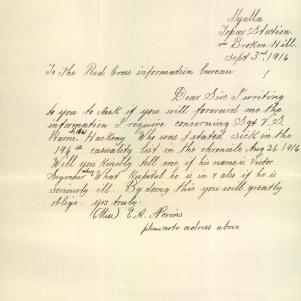 Myalla
Topar Station
via Broken Hill.
Sept 3rd 1916
To The Red Cross information bureau
Dear Sirs I writing
to you to ask if you will forward me the
information I require concerning Sgt V.S.
Harris. Hackney Who was stated sick in the
196th casualty list in the chronicle Aug 26. 1916
Will you kindly tell me if his name is Victor
Seymour What Hospital he is in & also if he is
seriously ill. By doing this you will greatly
oblige. yrs truly.
(Miss) E.A. Nevins
please note adress above